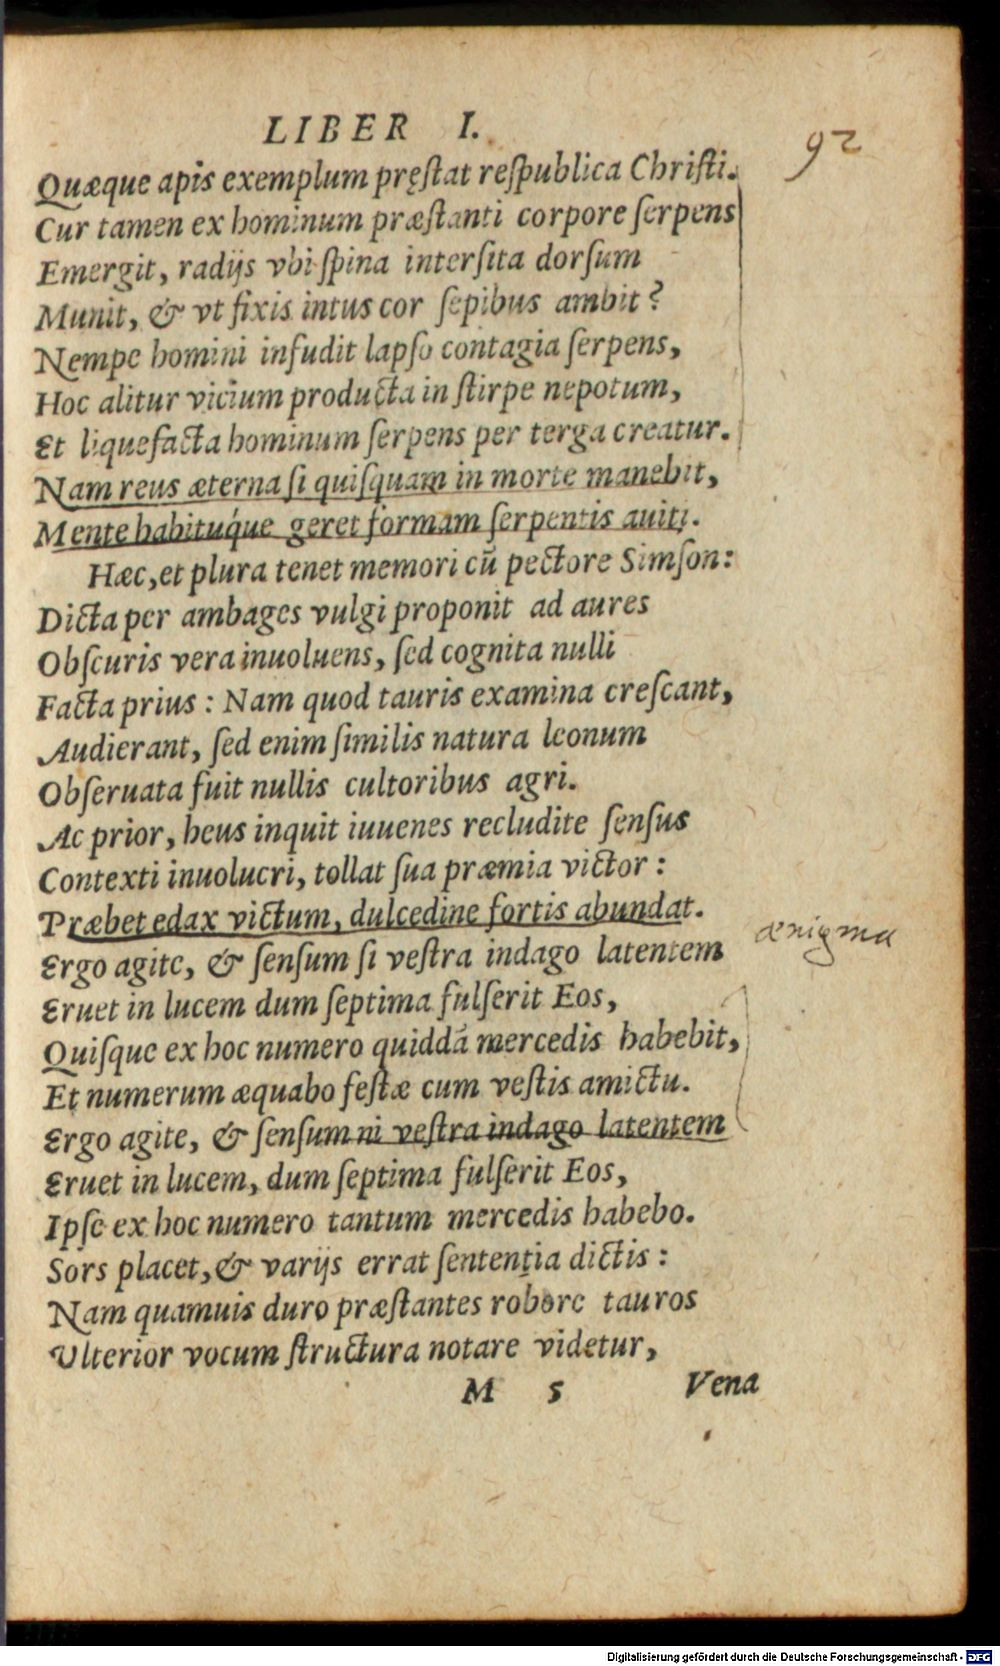 LIBER I.
92
Quæque apis exemplum pręſtat reſpublica Chriſti.
Cur tamen ex hominum præſtanti corpore ſerpens
Emergit, radijs vbi ſpina interſita dorſum
Munit, & vt fixis intus cor ſepibus ambit?
Nempe homini infudit lapſo contagia ſerpens,
Hoc alitur vicium producta in ſtirpe nepotum,
Et liquefacta hominum ſerpens per terga creatur.
Nam reus æterna ſi quiſquam in morte manebit,
Mente habituq́ue geret formam ſerpentis auiti.
Hæc, et plura tenet memori cū pectore Simſon:
Dicta per ambages vulgi proponit ad aures
Obſcuris vera inuoluens, ſed cognita nulli
Facta prius: Nam quod tauris examina creſcant,
Audierant, ſed enim ſimilis natura leonum
Obſeruata fuit nullis cultoribus agri.
Ac prior, heus inquit iuuenes recludite ſenſus
Contexti inuolucri, tollat ſua præmia victor:
Præbet edax victum, dulcedine fortis abundat.
ænigma
Ergo agite, & ſenſum ſi veſtra indago latentem
Eruet in lucem dum ſeptima fulſerit Eos,
Quiſque ex hoc numero quiddā mercedis habebit,
Et numerum æquabo feſtæ cum veſtis amictu.
Ergo agite, & ſenſum ni veſtra indago latentem
Eruet in lucem, dum ſeptima fulſerit Eos,
Ipſe ex hoc numero tantum mercedis habebo.
Sors placet, & varijs errat ſententia dictis:
Nam quamuis duro præſtantes robore tauros
Vlterior vocum ſtructura notare videtur,
M 5 Vena
Digitalisierung gefördert durch die Deutsche Forschungsgemeinschaft - DFG